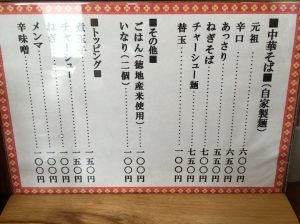 ■中華そば■(自家製麺)
元祖‥‥‥‥六〇〇円
辛口‥‥‥‥六五〇円
あっさり‥‥‥‥五五〇円
ねぎそば‥‥‥‥七〇〇円
チャーシュー麺‥‥‥‥七五〇円
替玉‥‥‥‥一〇〇円
■その他■
ごはん(徳地産米使用)‥‥一〇〇円
いなり(二個)‥‥‥‥一〇〇円
■トッピング■
煮玉子‥‥‥‥一五〇円
チャーシュー‥‥‥‥二五〇円
ねぎ‥‥‥‥一〇〇円
メンマ‥‥‥‥一〇〇円
辛味噌‥‥‥‥一〇〇円